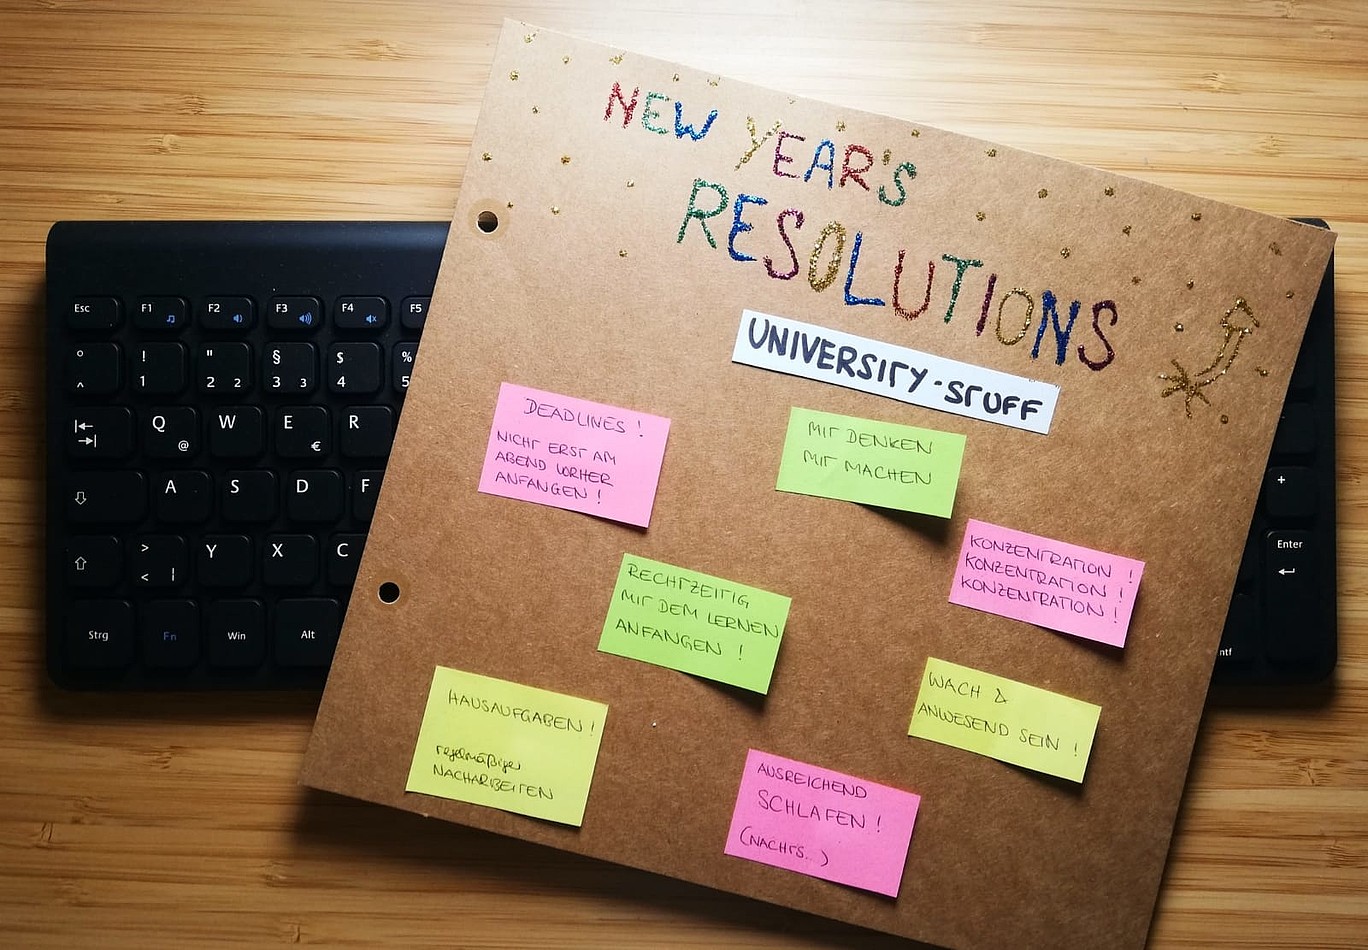 NEW YEAR'S
RESOLUTIONS
UNIVERSITY-STUFF
DEADLINES!
NICHT ERST AM
ABEND VORHER
ANFANGEN!
MIT DENKEN
MIT MACHEN
KONZENTRATION!
KONZENTRATION!
KONZENTRATION!
RECHTZEITIG
MIT DEM LERNEN
ANFANGEN!
WACH &
ANWESEND SEIN!
HAUSAUFGABEN!
regelmäßiges
NACHARBEITEN
AUSREICHEND
SCHLAFEN!
(NACHTS..)
Esc F1 F2 F3 F4 F5
° ! " § $ %
^ 1 2 2 3 3 4 5
Q @ W E € R
A S D F
> < | Y X C
Strg Fn Win Alt
+
Enter
ntf